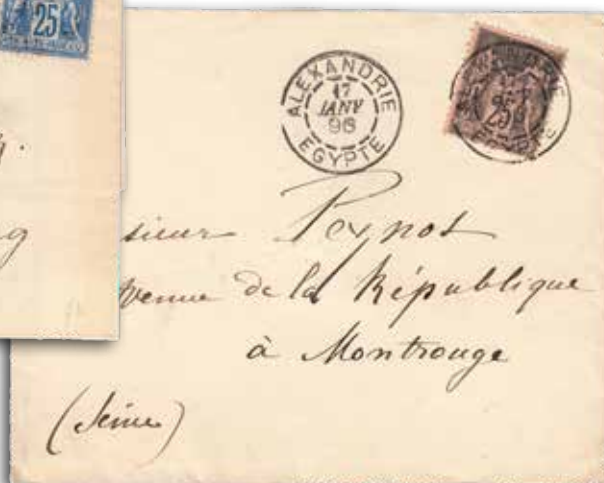 25
ALEXANDRIE
17
JANV
96
EGYPTE
25
sieur Peynot
venue de la République
à Montrouge
(Seine)